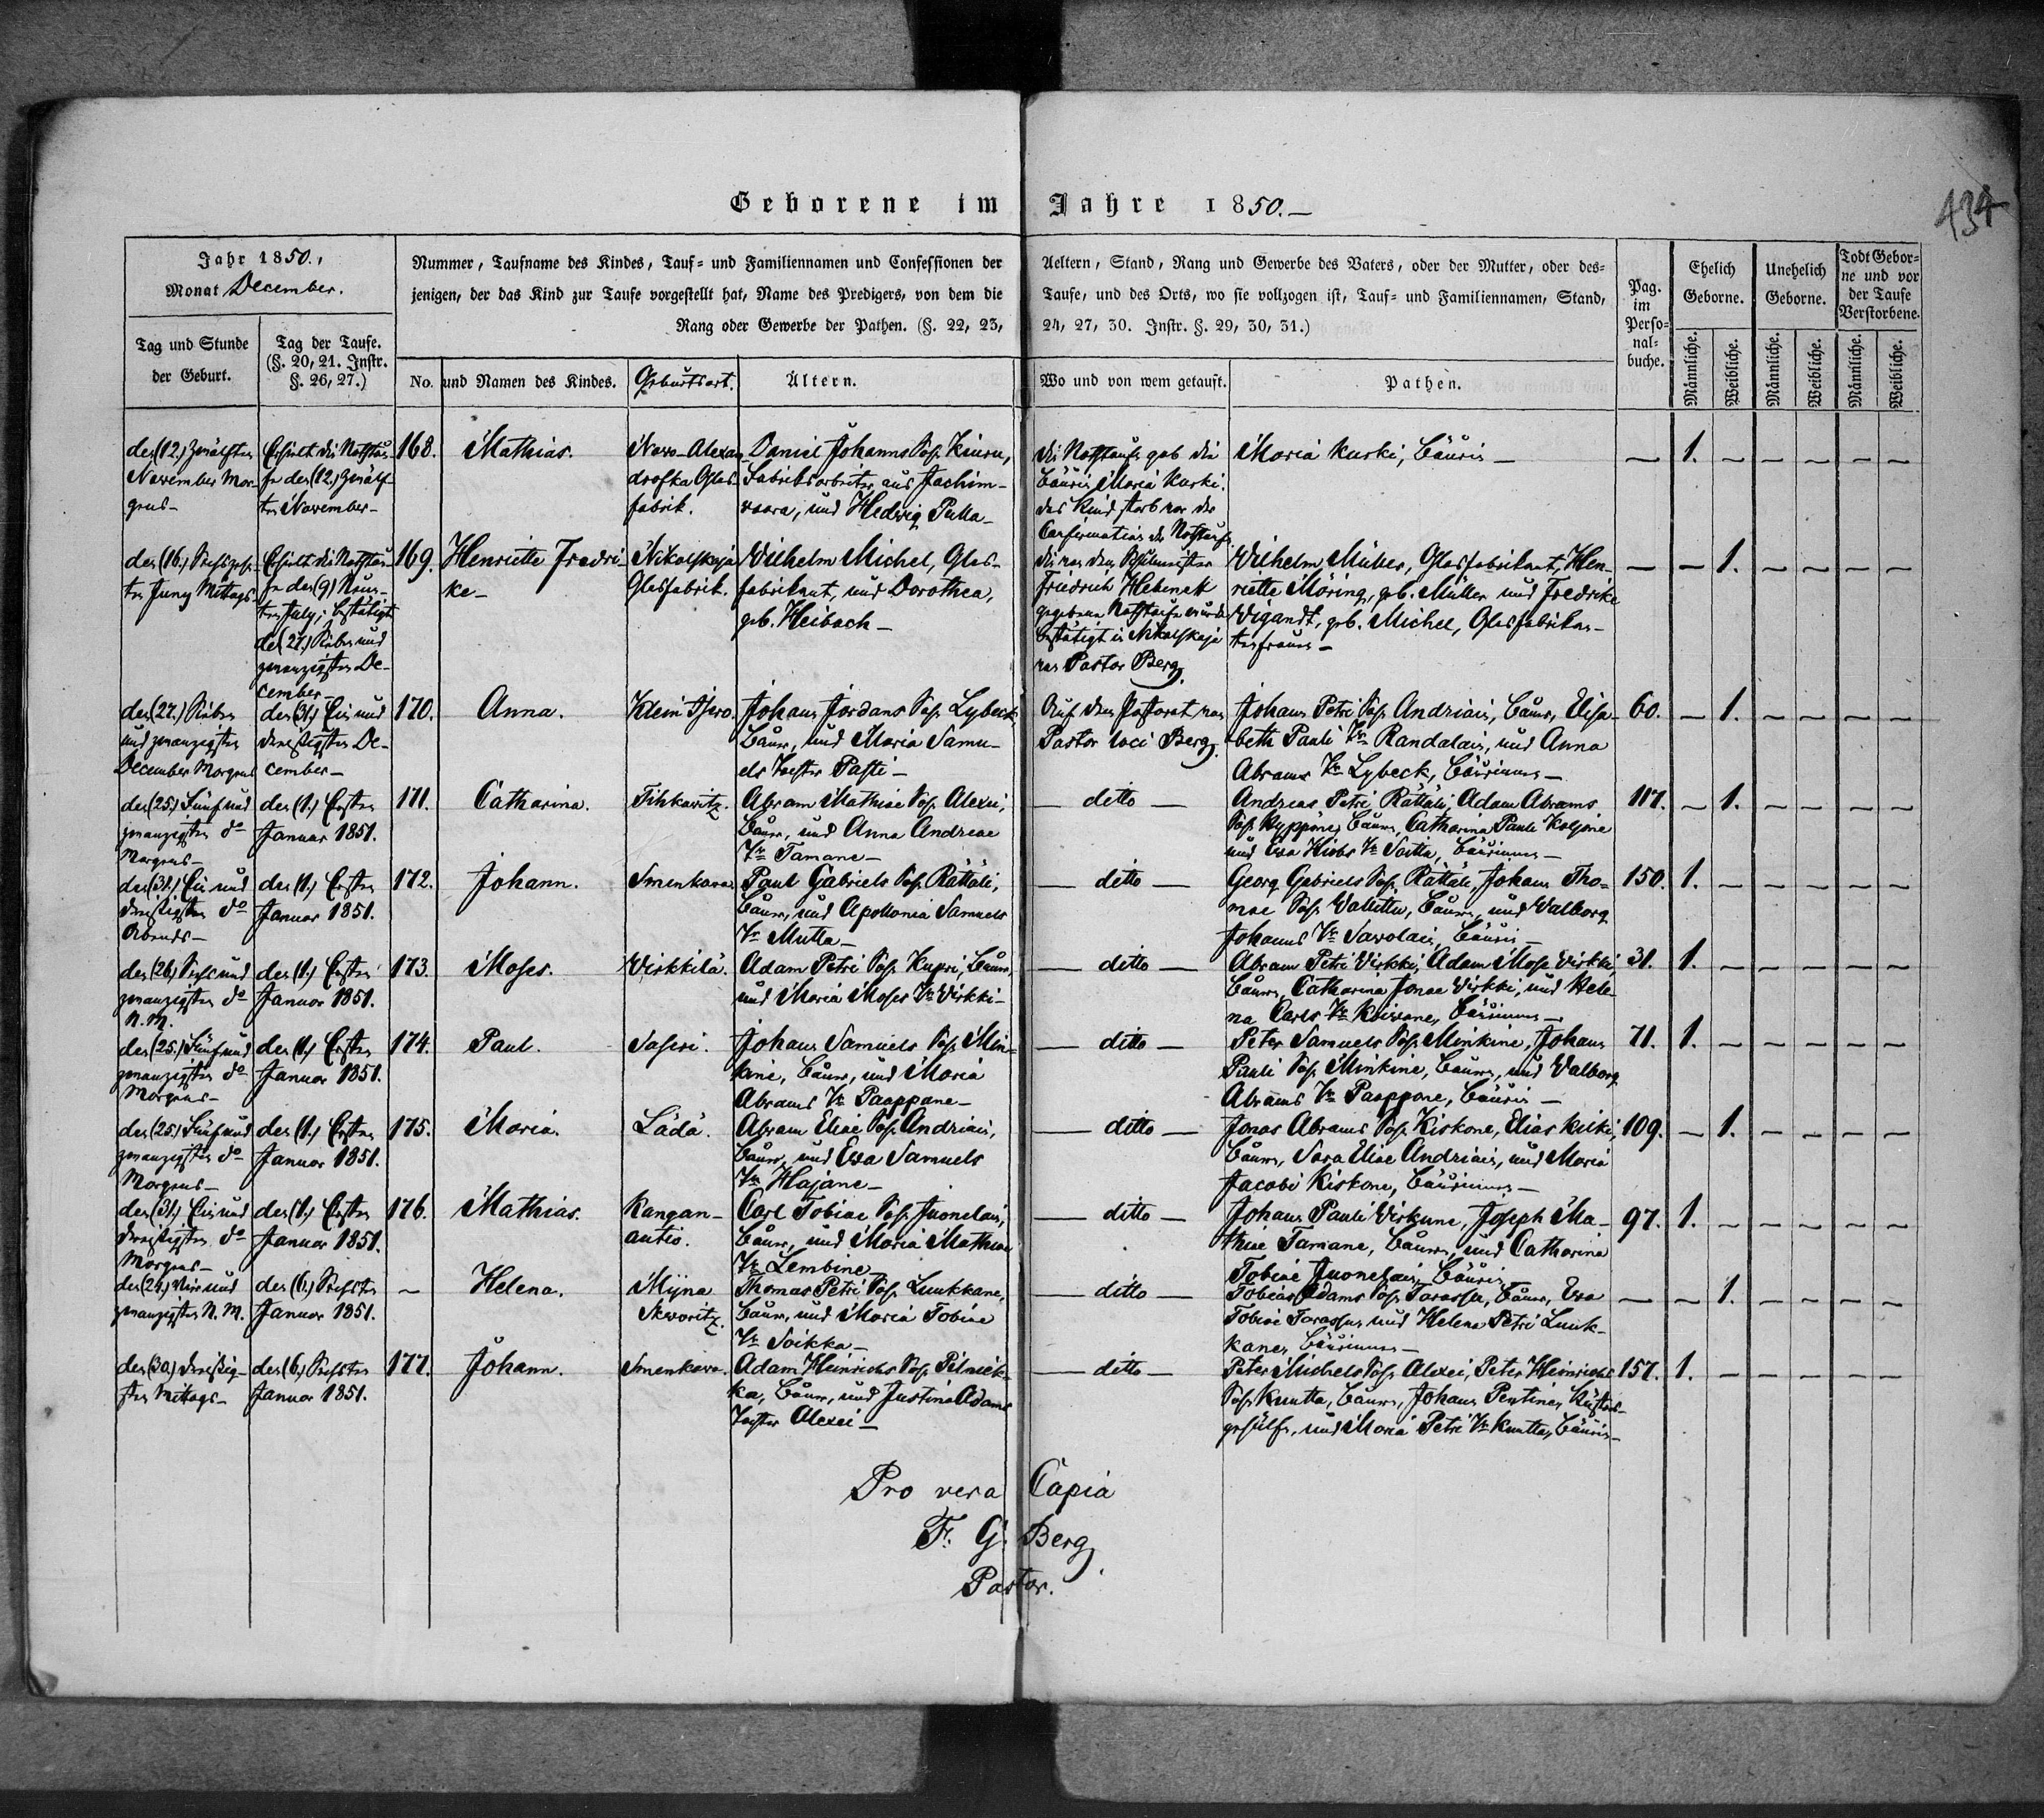 Geborene im Jahre 1850.—
434
Jahr 1850.,
Monat December.
Nummer, Taufname des Kindes, Tauf- und Familiennamen und Confessionen der
jenigen, der das Kind zur Taufe vorgestellt hat, Name des Predigers, von dem die
Rang oder Gewerbe der Pathen. (§. 22, 23,
Aeltern, Stand, Rang und Gewerbe des Vaters, oder der Mutter, oder des-
Taufe, und des Orts, wo sie vollzogen ist, Tauf- und Familiennamen, Stand,
24, 27, 30. Instr. §. 29, 30, 31.)
Tag und Stunde
der Geburt.
Tag der Taufe.
(§. 20, 21. Instr.
§. 26, 27.)
No. und Namen des Kindes.
Geburtsort.
Ältern.
Wo und von wem getauft.
Pathen.
Pag.
im
Perso-
nal-
buche.
Ehelich
Geborne.
Unehelich
Geborne.
Todt Gebor-
ne und vor
der Taufe
Verstorbene.
Männliche.
Weibliche.
Männliche.
Weibliche.
Männliche.
Weibliche.
den (12.) Zwölften
November Mor-
gens—
Erhielt die Nothtau-
fe den (12.) Zwölf-
ten November—
168.
Mathias.
Nowo-Alexan-
drofka Glas-
fabrik.
Daniel Johanns Sohn Kiuru,
Fabriksarbeiter aus Jachim-
vaara, und Hedwig Pulla—
die Nothtaufe gab die
Bäurin Maria Kurki.
das Kind starb vor der
Confirmation der Nothtaufe.
Maria Kurki, Bäurin—
— 1. — — — — —
den (16.) Sechszehn-
ten Juny Mittags
Erhielt die Nothtau-
fe den (9) Neun-
ten July; bestätigt
den (27.) Sieben und
zwanzigsten De-
cember—
169.
Henriette Fredri-
ke—
Nikolskaja
Glasfabrik.
Wilhelm Michel, Glas-
fabrikant, und Dorothea,
geb. Heibach—
die von dem Schulmeister
Friedrich Hebenek
gegebene Nothtaufe wurde
bestätigt in Nikolskaja
von Pastor Berg.
Wilhelm Müller, Glasfabrikant, Hen-
riette Möring, geb. Müller und Fredrike
Wigandt, geb. Michel, Glasfabrikan-
tenfrauen—
— — 1. — — — —
den (27.) Sieben
und zwanzigsten
December Morgens
den (31.) Ein und
dreißigsten De-
cember—
170.
Anna.
Klein Isero.
Johann Jordans Sohn Lybeck,
Bauer, und Maria Samu-
els Tochter Pasti—
Auf dem Pastorat von
Pastor loci Berg.
Johann Petri Sohn Andriain, Bauer, Elisa-
beth Pauli Tr. Randalain, und Anna
Abrams Tr. Lybeck, Bäurinnen—
60. — 1. — — — —
den (25.) Fünf und
zwanzigsten do
Morgens—
den (1.) Ersten
Januar 1851.
171.
Catharina.
Tihkowitz.
Abram Mathiae Sohn Alexei,
Bauer, und Anna Andreae
Tr. Tamane—
— ditto —
Andreas Petri Rättäli, Adam Abrams
Sohn Kyppöne, Bauern, Catharina Pauli Koljone
und Ewa Hiobs Tr. Soitta, Bäurinnen—
117. — 1. — — — —
den (31.) Ein und
dreißigsten do
Abends—
den (1.) Ersten
Januar 1851.
172.
Johann.
Smenkowa.
Paul Gabriels Sohn Rättäli,
Bauer, und Apollonia Samuels
Tr. Mutta—
— ditto —
Georg Gabriels Sohn Rättäli, Johann Tho-
mae Sohn Valuttu, Bauern, und Walborg
Johanns Tr. Savolain, Bäurin—
150. 1. — — — — —
den (26.) Sechs und
zwanzigsten do
N. M.
den (1.) Ersten
Januar 1851.
173.
Moses.
Wirkkilä.
Adam Petri Sohn Kupri, Bauer,
und Maria Moses Tr. Wirkki—
— ditto —
Abram Petri Wirkki, Adam Mose Wirkki,
Bauern, Catharina Jonae Wirkki, und Hele-
na Carls Tr. Koissone, Bäurinnen—
31. 1. — — — — —
den (25.) Fünf und
zwanzigsten do
Morgens—
den (1.) Ersten
Januar 1851.
174.
Paul.
Saseri.
Johann Samuels Sohn Min-
kine, Bauer, und Maria
Abrams Tr. Paappane—
— ditto —
Peter Samuels Sohn Minkine, Johann
Pauli Sohn Minkine, Bauern, und Walborg
Abrams Tr. Paappone, Bäurin—
71. 1. — — — — —
den (25.) Fünf und
zwanzigsten do
Morgens—
den (1.) Ersten
Januar 1851.
175.
Maria.
Lädä.
Abram Eliae Sohn Andriain,
Bauer, und Ewa Samuels
Tr. Hajane—
— ditto —
Jonas Abrams Sohn Kiskone, Elias Kiiki,
Bauern, Sara Eliae Andriain, und Maria
Jacobi Kiskone, Bäurinnen—
109. — 1. — — — —
den (31.) Ein und
dreißigsten do
Morgens—
den (1.) Ersten
Januar 1851.
176.
Mathias.
Kangan-
autio.
Carl Tobiae Sohn Juonelain,
Bauer, und Maria Mathiae
Tr. Lembine—
— ditto —
Johann Pauli Wirkune, Joseph Ma-
thiae Tamane, Bauern, und Catharina
Tobiae Juonelain, Bäurin
97. 1. — — — — —
den (24.) Vier und
zwanzigsten N. M.
den (6.) Sechsten
Januar 1851.
—
Helena.
Mijna
Skworitz.
Thomas Petri Sohn Luukkane,
Bauer, und Maria Tobiae
Tr. Soikka—
— ditto —
Tobias Adams Sohn Tarassu, Bauer, Ewa
Tobiae Tarassu, und Helena Petri Luuk-
kane, Bäurinnen—
— — 1. — — — —
den (30.) dreißig-
sten Mittags—
den (6.) Sechsten
Januar 1851.
177.
Johann.
Smenkowa.
Adam Heinrichs Sohn Pilniek-
ka, Bauer, und Justina Adams
Tochter Alexei—
— ditto —
Peter Michels Sohn Alexei, Peter Heinrichs
Sohn Knutta, Bauern, Johann Pentine, Küsters-
gehülfe, und Maria Petri Tr. Knutta, Bäurin—
157. 1. — — — — —
Pro vera Copia
F. G. Berg
Pastor.